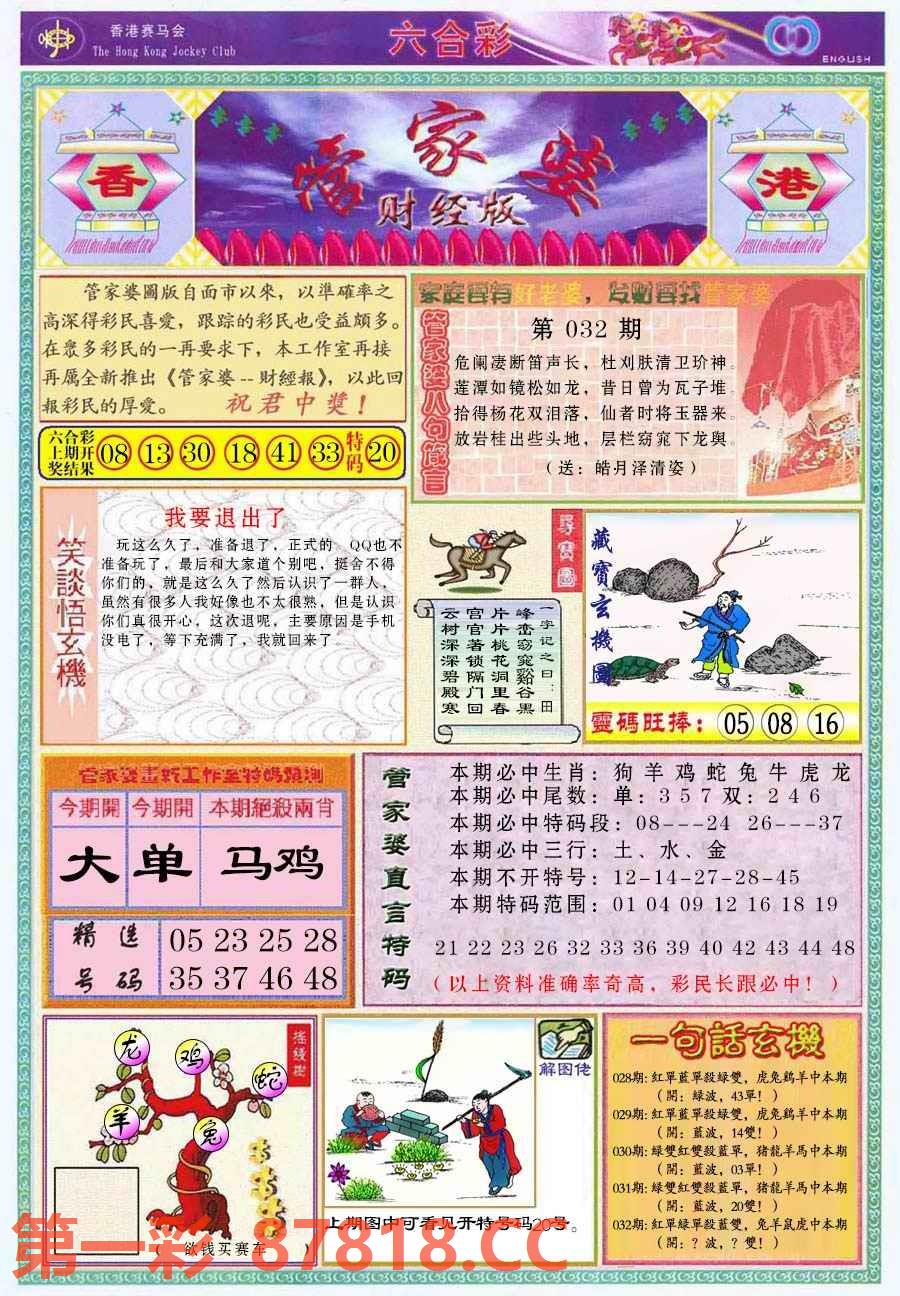 香港赛马会
The Hong Kong Jockey Club
六合彩
ENGLISH
管家婆
财经版
香
港
管家婆圖版自面市以來，以準確率之
高深得彩民喜愛，跟踪的彩民也受益頗多。
在眾多彩民的一再要求下，本工作室再接
再属全新推出《管家婆--財經報》，以此回
報彩民的厚愛。 祝君中獎！
六合彩
上期开
奖结果
08 13 30 18 41 33 特码 20
家庭要有好老婆，发财要找管家婆
管家婆八句箴言
第 032 期
危阑凄断笛声长，杜刈肤清卫玠神。
莲潭如镜松如龙，昔日曾为瓦子堆。
拾得杨花双泪落，仙者时将玉器来。
放岩桂出些头地，层栏窈窕下龙舆。
（送：皓月泽清姿）
笑談悟玄機
我要退出了
玩这么久了，准备退了，正式的 QQ也不
准备玩了，最后和大家道个别吧，挺舍不得
你们的，就是这么久了然后认识了一群人，
虽然有很多人我好像也不太很熟，但是认识
你们真很开心，这次退呢，主要原因是手机
没电了，等下充满了，我就回来了
尋寶圖
一字记之曰：田
峰峦窈窕谿谷黑
片片桃花洞里春
宫官著锁隔门回
云树深深碧殿寒
藏寶玄機圖
靈碼旺捧：05 08 16
管家婆畫匠工作室特碼預測
今期開 今期開 本期絕殺兩肖
大 单 马鸡
精选
号码
05 23 25 28
35 37 46 48
管家婆直言特码
本期必中生肖：狗羊鸡蛇兔牛虎龙
本期必中尾数：单：357双：246
本期必中特码段：08---24 26---37
本期必中三行：土、水、金
本期不开特号：12-14-27-28-45
本期特码范围：01 04 09 12 16 18 19
21 22 23 26 32 33 36 39 40 42 43 44 48
（以上资料准确率奇高，彩民长跟必中！）
搖錢樹
龙
鸡
蛇
羊
兔
（ 欲钱买赛车 ）
解图佬
上期图中可看见开特号码20号。
一句話玄機
028期：紅單藍單殺緑雙，虎兔鷄羊中本期
（開：緑波，43單！）
029期：紅單藍單殺緑雙，虎兔鷄羊中本期
（開：藍波，14雙！）
030期：緑雙紅雙殺藍單，猪龍羊馬中本期
（開：藍波，03單！）
031期：緑雙紅雙殺藍單，猪龍羊馬中本期
（開：藍波，20雙！）
032期：紅單緑單殺藍雙，兔羊鼠虎中本期
（開：？波，？雙！）
第一彩 87818.CC